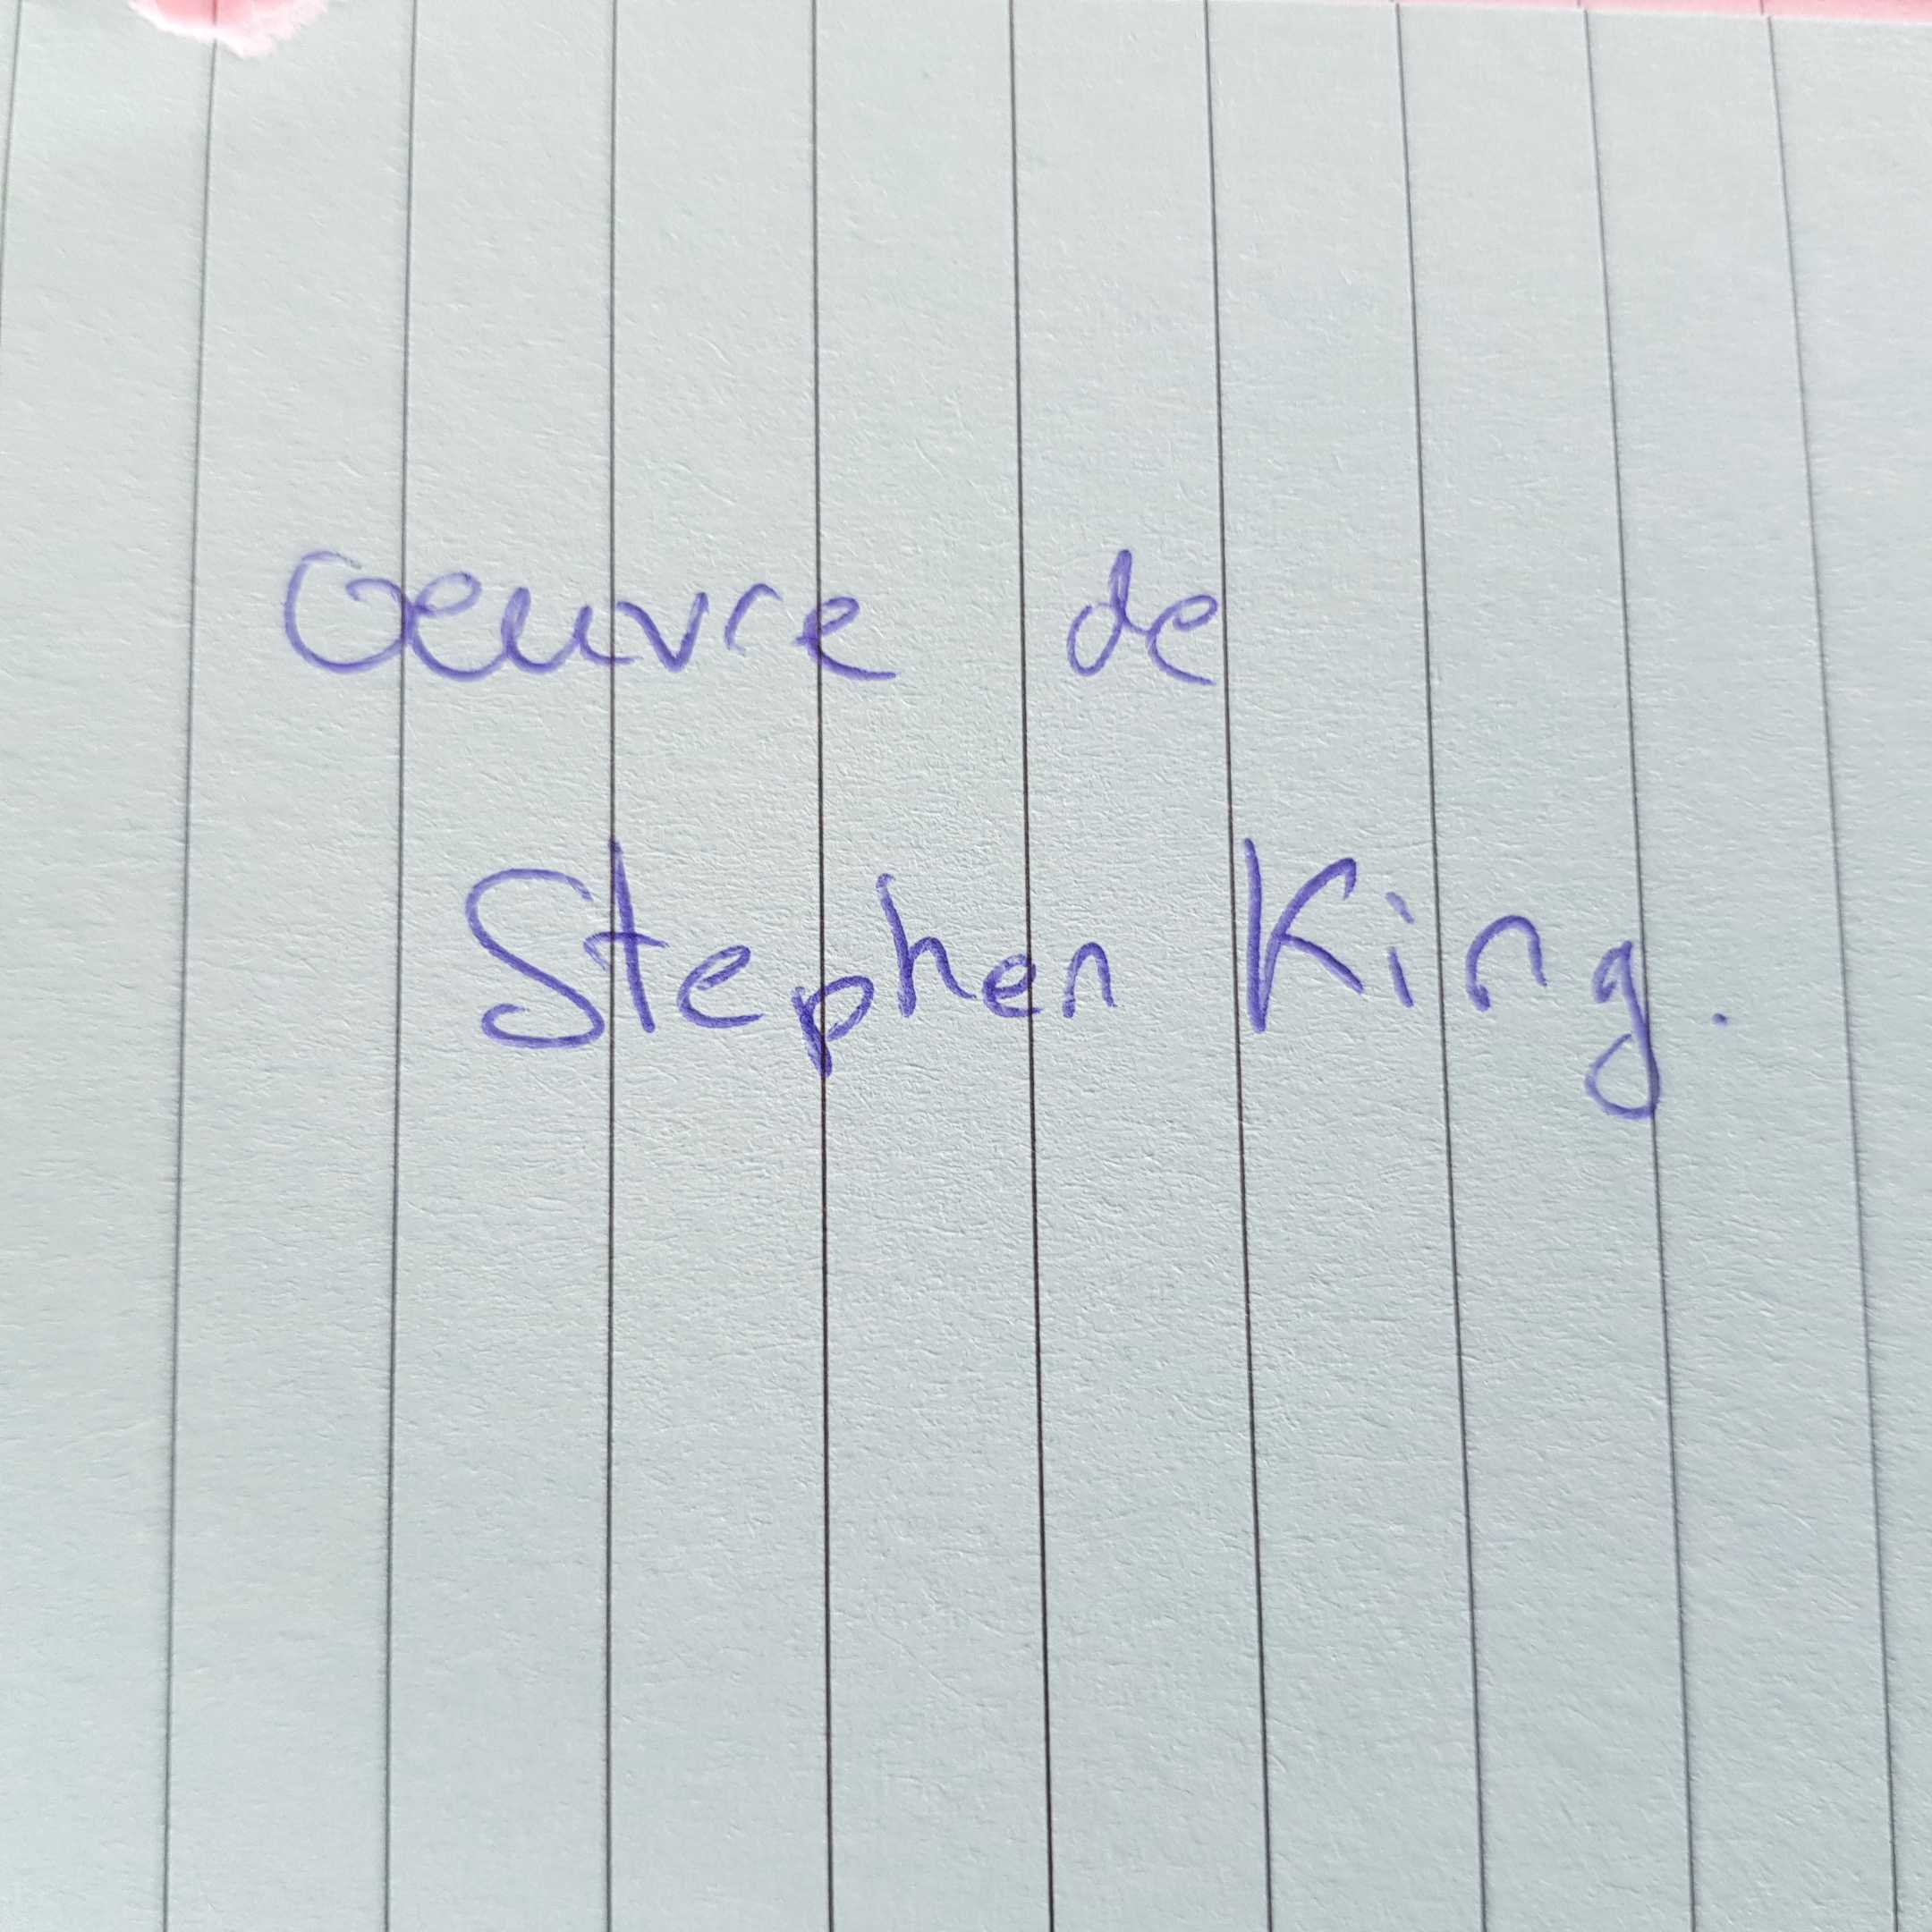 Oeuvre de
Stephen King.